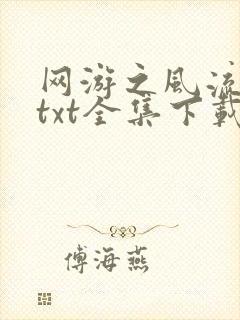 网游之风流
txt全集下载
傅海燕